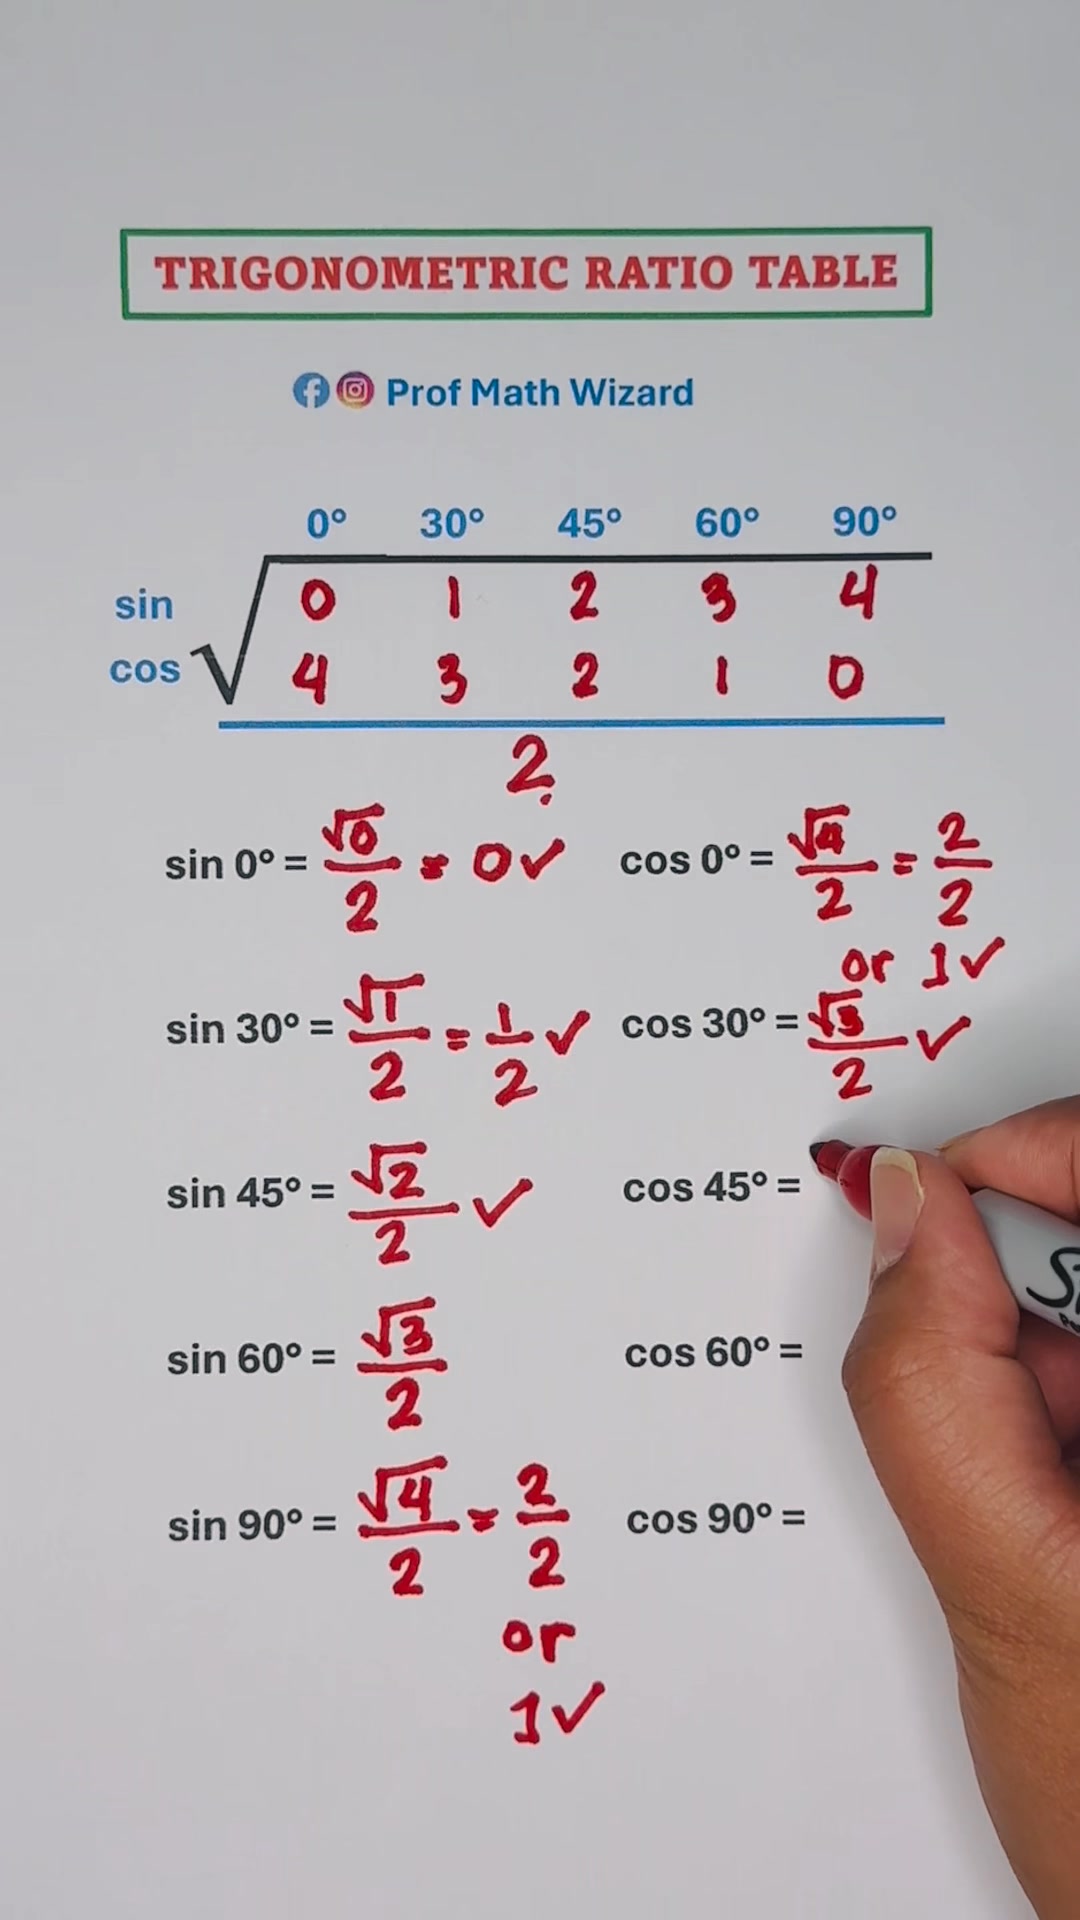 TRIGONOMETRIC RATIO TABLE
Prof Math Wizard
0° 30° 45° 60° 90°
sin 0 1 2 3 4
cos √ 4 3 2 1 0
2
sin 0° = √0/2 = 0 ✓ cos 0° = √4/2 = 2/2
or 1 ✓
sin 30° = √1/2 = 1/2 ✓ cos 30° = √3/2 ✓
sin 45° = √2/2 ✓ cos 45° =
sin 60° = √3/2 cos 60° =
sin 90° = √4/2 = 2/2 cos 90° =
or
1 ✓